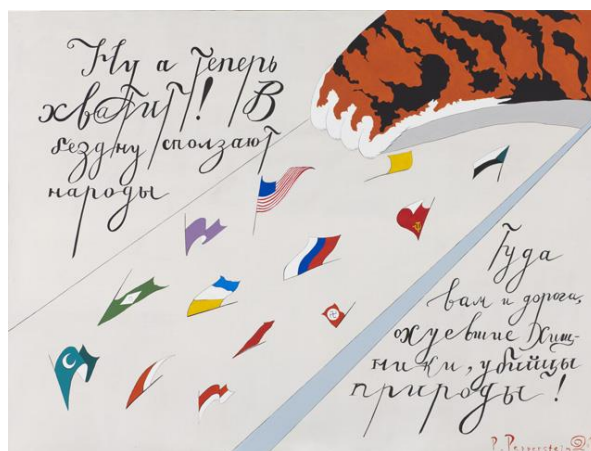 Ну а теперь
хватит! В
бездну сползают
народы
Туда
вам и дорога,
охуевшие Хищ-
ники, убийцы
природы!
P. Pepperstein